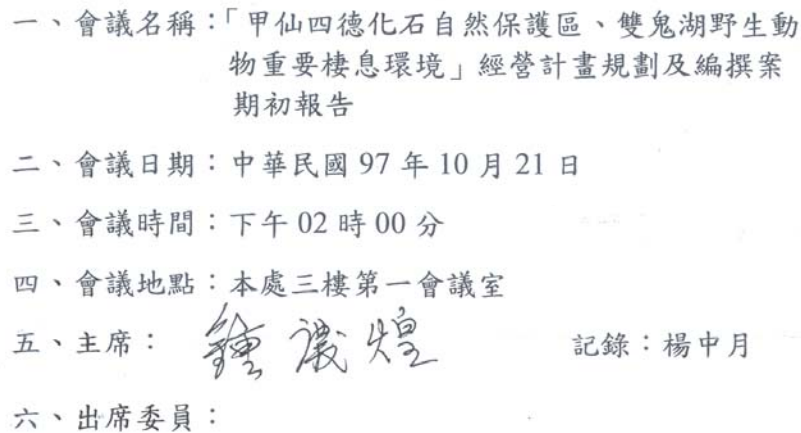 一、會議名稱：「甲仙四德化石自然保護區、雙鬼湖野生動
物重要棲息環境」經營計畫規劃及編撰案
期初報告
二、會議日期：中華民國 97 年 10 月 21 日
三、會議時間：下午 02 時 00 分
四、會議地點：本處三樓第一會議室
五、主席： 記錄：楊中月
六、出席委員：